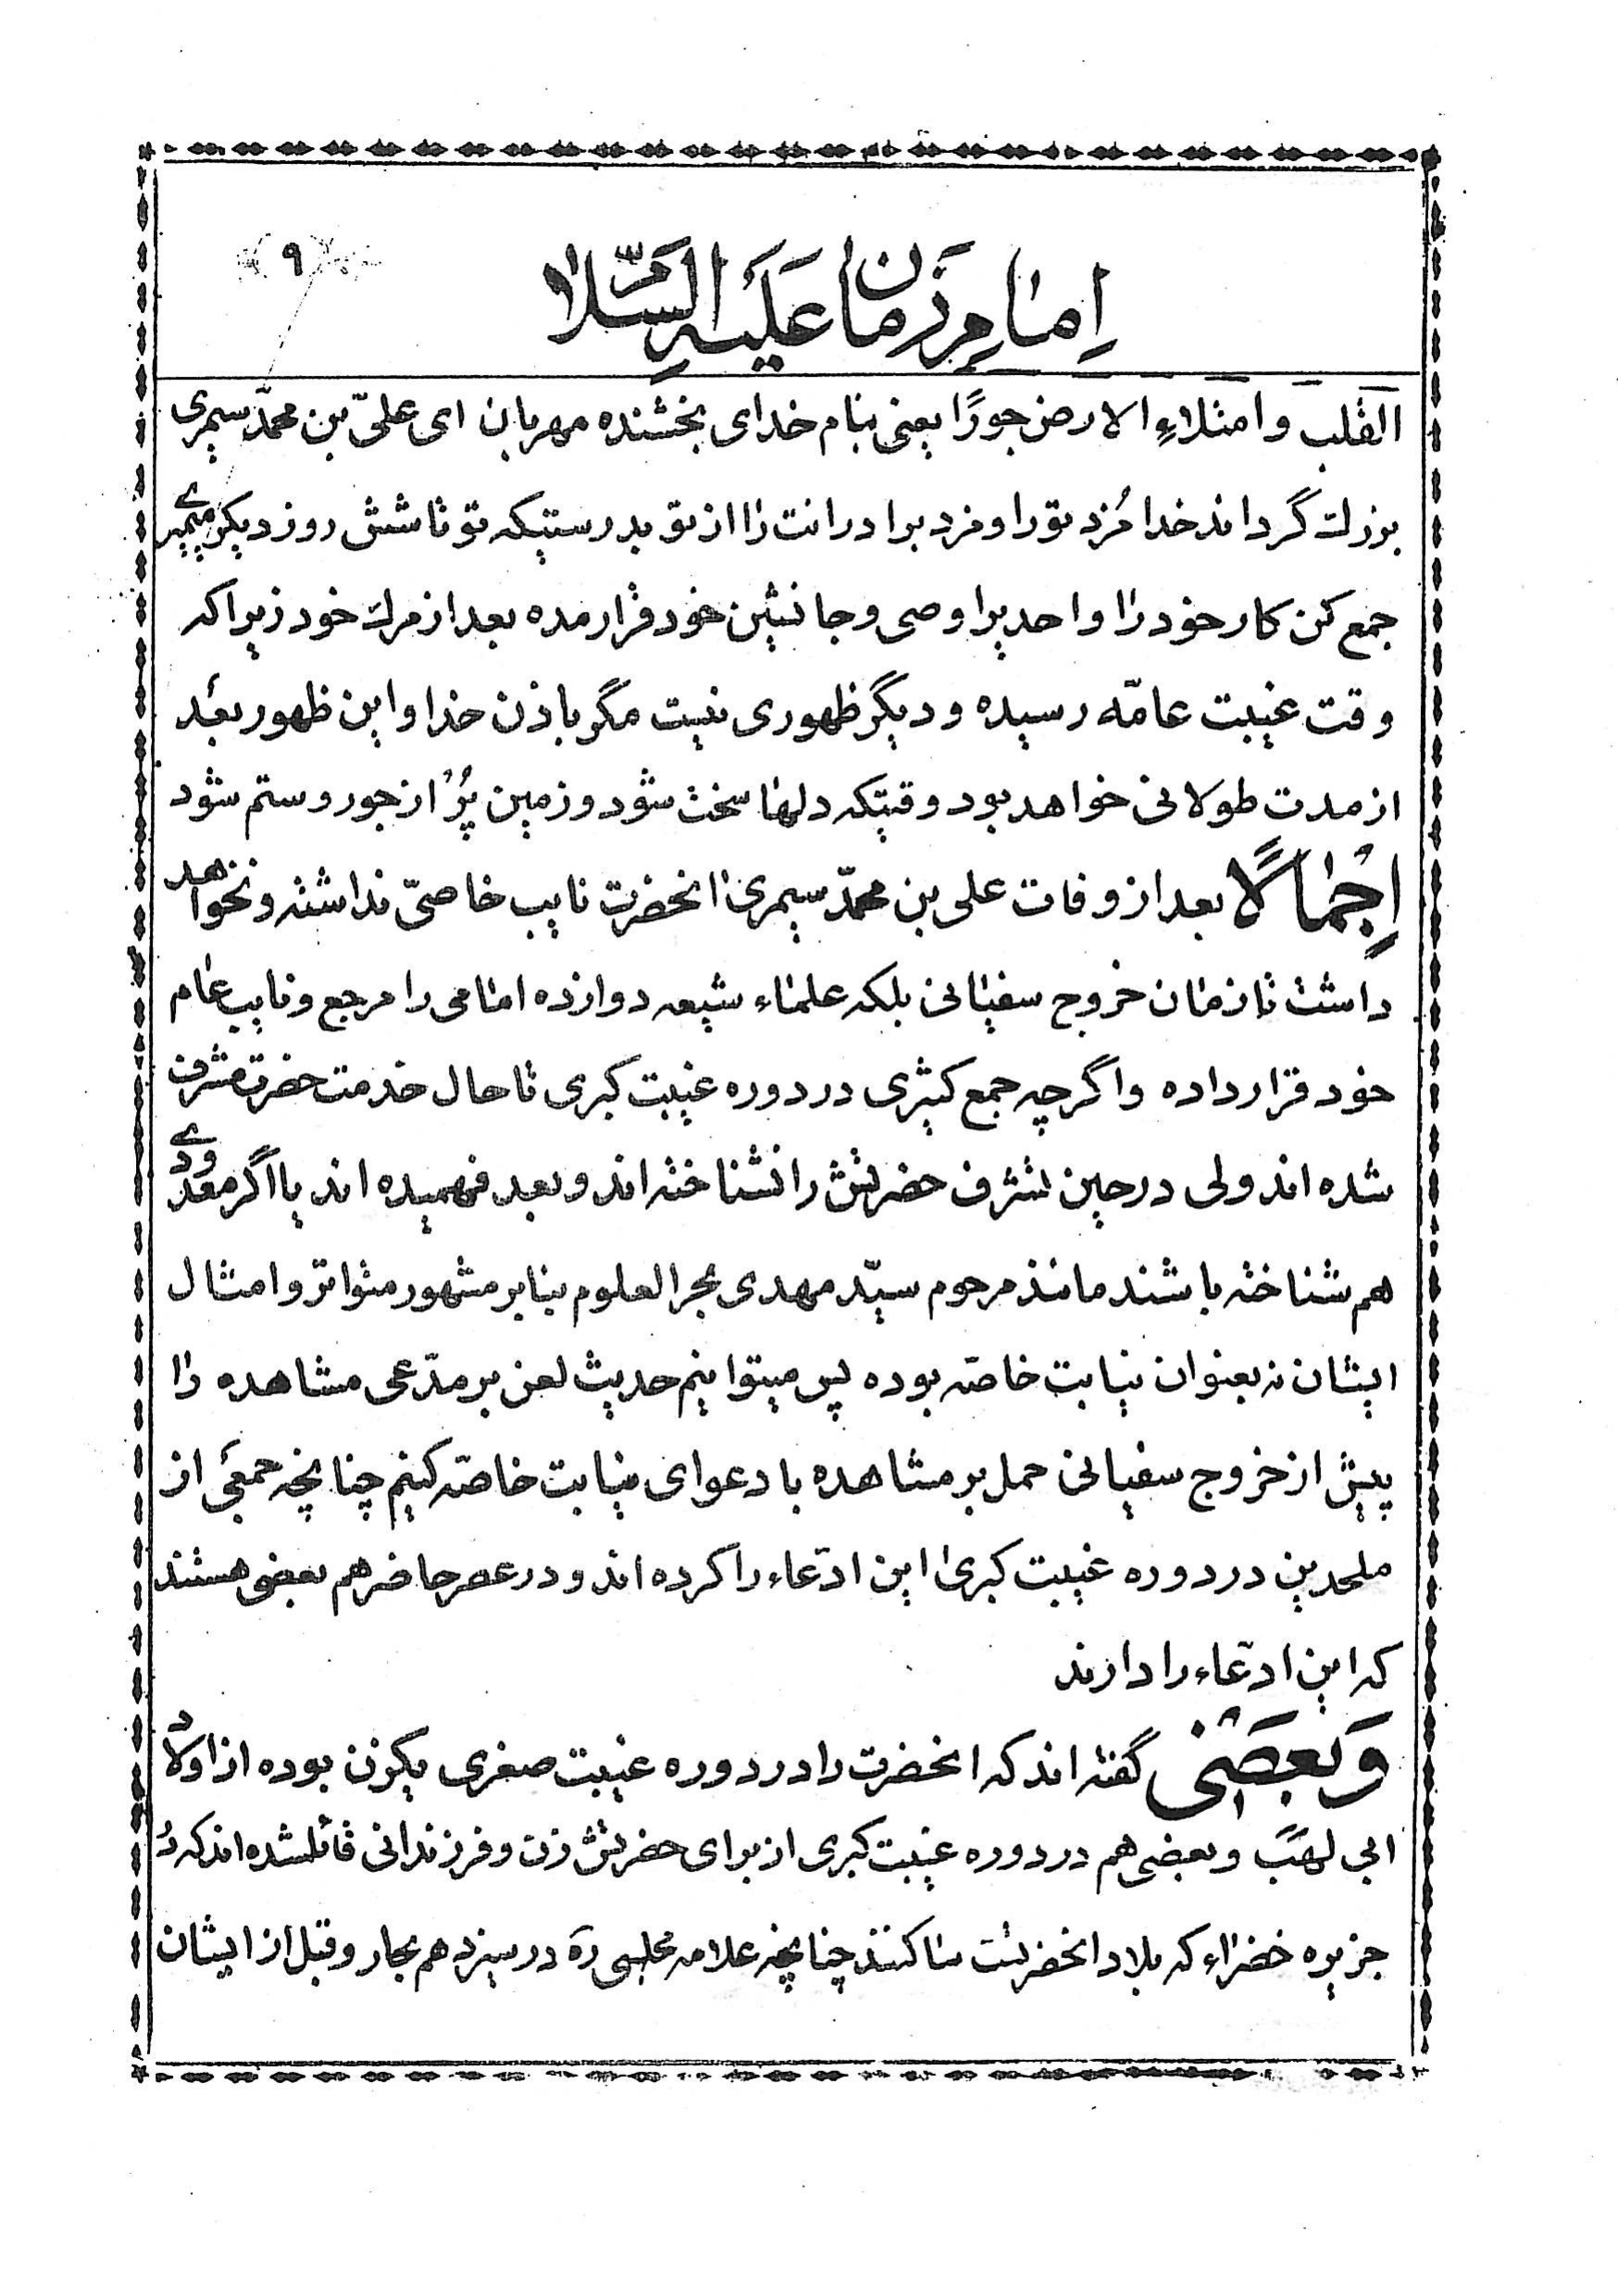 ۹
امام زمان علیه السلام
القلب و امتلاءِ الارض جورًا یعنی بنام خدای بخشنده مهربان ای علیّ بن محمّد سیمری
بزرك گرداند خدا مُزد تو را و مزد برادرانت را از تو بدرستیکه تو تا شش روز دیگر میمیری
جمع کن کار خود را و احدیرا وصی و جانشین خود قرار مده بعد از مرك خود زیرا که
وقت غیبت عامّه رسیده و دیگر ظهوری نیست مگر باذن خدا و این ظهور بعد
از مدت طولانی خواهد بود وقتیکه دلها سخت شود و زمین پُر از جور و ستم شود
اِجْمالًا بعد از وفات علی بن محمّد سیمری انحضرت نایب خاصّی نداشته و نخواهد
داشت تا زمان خروج سفیانی بلکه علماء شیعه دوازده امامی را مرجع و نایب عام
خود قرار داده و اگرچه جمع کثیری در دوره غیبت کبری تا حال خدمت حضرت مشرف
شده اند ولی در حین تشرف حضرتش را نشناخته اند و بعد فهمیده اند یا اگر معدودی
هم شناخته باشند مانند مرحوم سیّد مهدی بحر العلوم بنابر مشهور متواتر و امثال
ایشان نه بعنوان نیابت خاصّه بوده پس میتوانیم حدیث لعن بر مدّعی مشاهده را
پیش از خروج سفیانی حمل بر مشاهده با دعوای نیابت خاصّه کنیم چنانچه جمعی از
ملحدین در دوره غیبت کبریٰ این ادّعاء را کرده اند و در عصر حاضر هم بعضی هستند
که این ادّعاء را دارند
وَ بَعضی گفته اند که انحضرت را در دوره غیبت صغری یکزن بوده از اولاد
ابی لهَب و بعضی هم در دوره غیبت کبری از برای حضرتش زن و فرزندانی قائلشده اند که در
جزیره خضراء که بلاد انحضرتست ساکنند چنانچه علامه مجلسی ره در سیزدهم بحار و قبل از ایشان